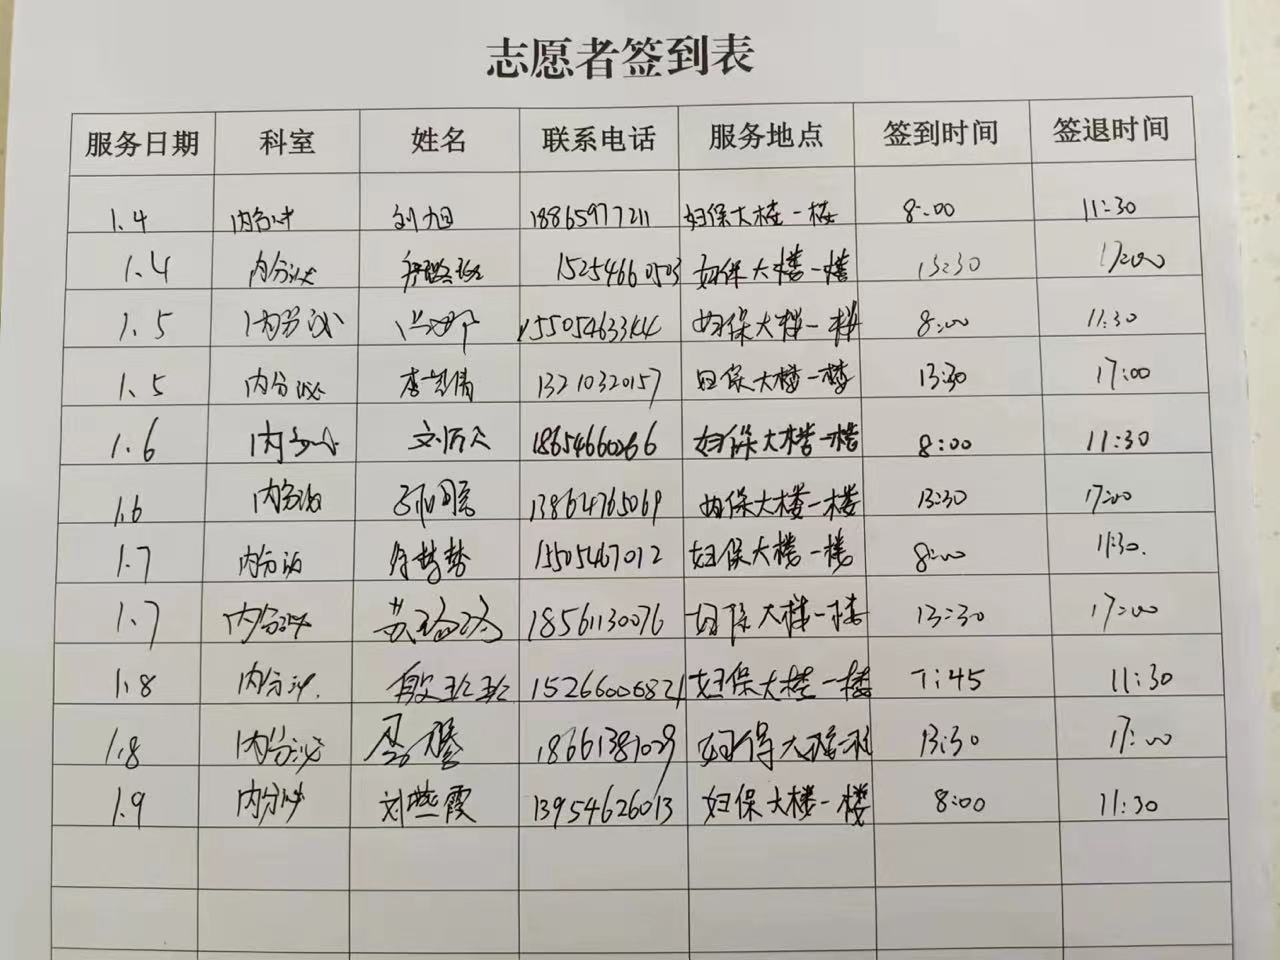 志愿者签到表
服务日期 科室 姓名 联系电话 服务地点 签到时间 签退时间
1.4 内分泌 刘旭 18865977211 妇保大楼一楼 8:00 11:30
1.4 内分泌 15254660503 妇保大楼一楼 13:30 17:00
1.5 内分泌 妇保大楼一楼 8:00 11:30
1.5 内分泌 李 倩 13210320157 妇保大楼一楼 13:30 17:00
1.6 内分泌 刘 18654660266 妇保大楼一楼 8:00 11:30
1.6 内分泌 13864765069 妇保大楼一楼 13:30 17:00
1.7 内分泌 15505467012 妇保大楼一楼 8:00 11:30.
1.7 内分泌 苏 18561130076 妇保大楼一楼 13:30 17:00
1.8 内分泌 殷班班 15266006821 妇保大楼一楼 7:45 11:30
1.8 内分泌 18661381029 妇保大楼一楼 13:30 17:00
1.9 内分泌 刘燕霞 13954626013 妇保大楼一楼 8:00 11:30